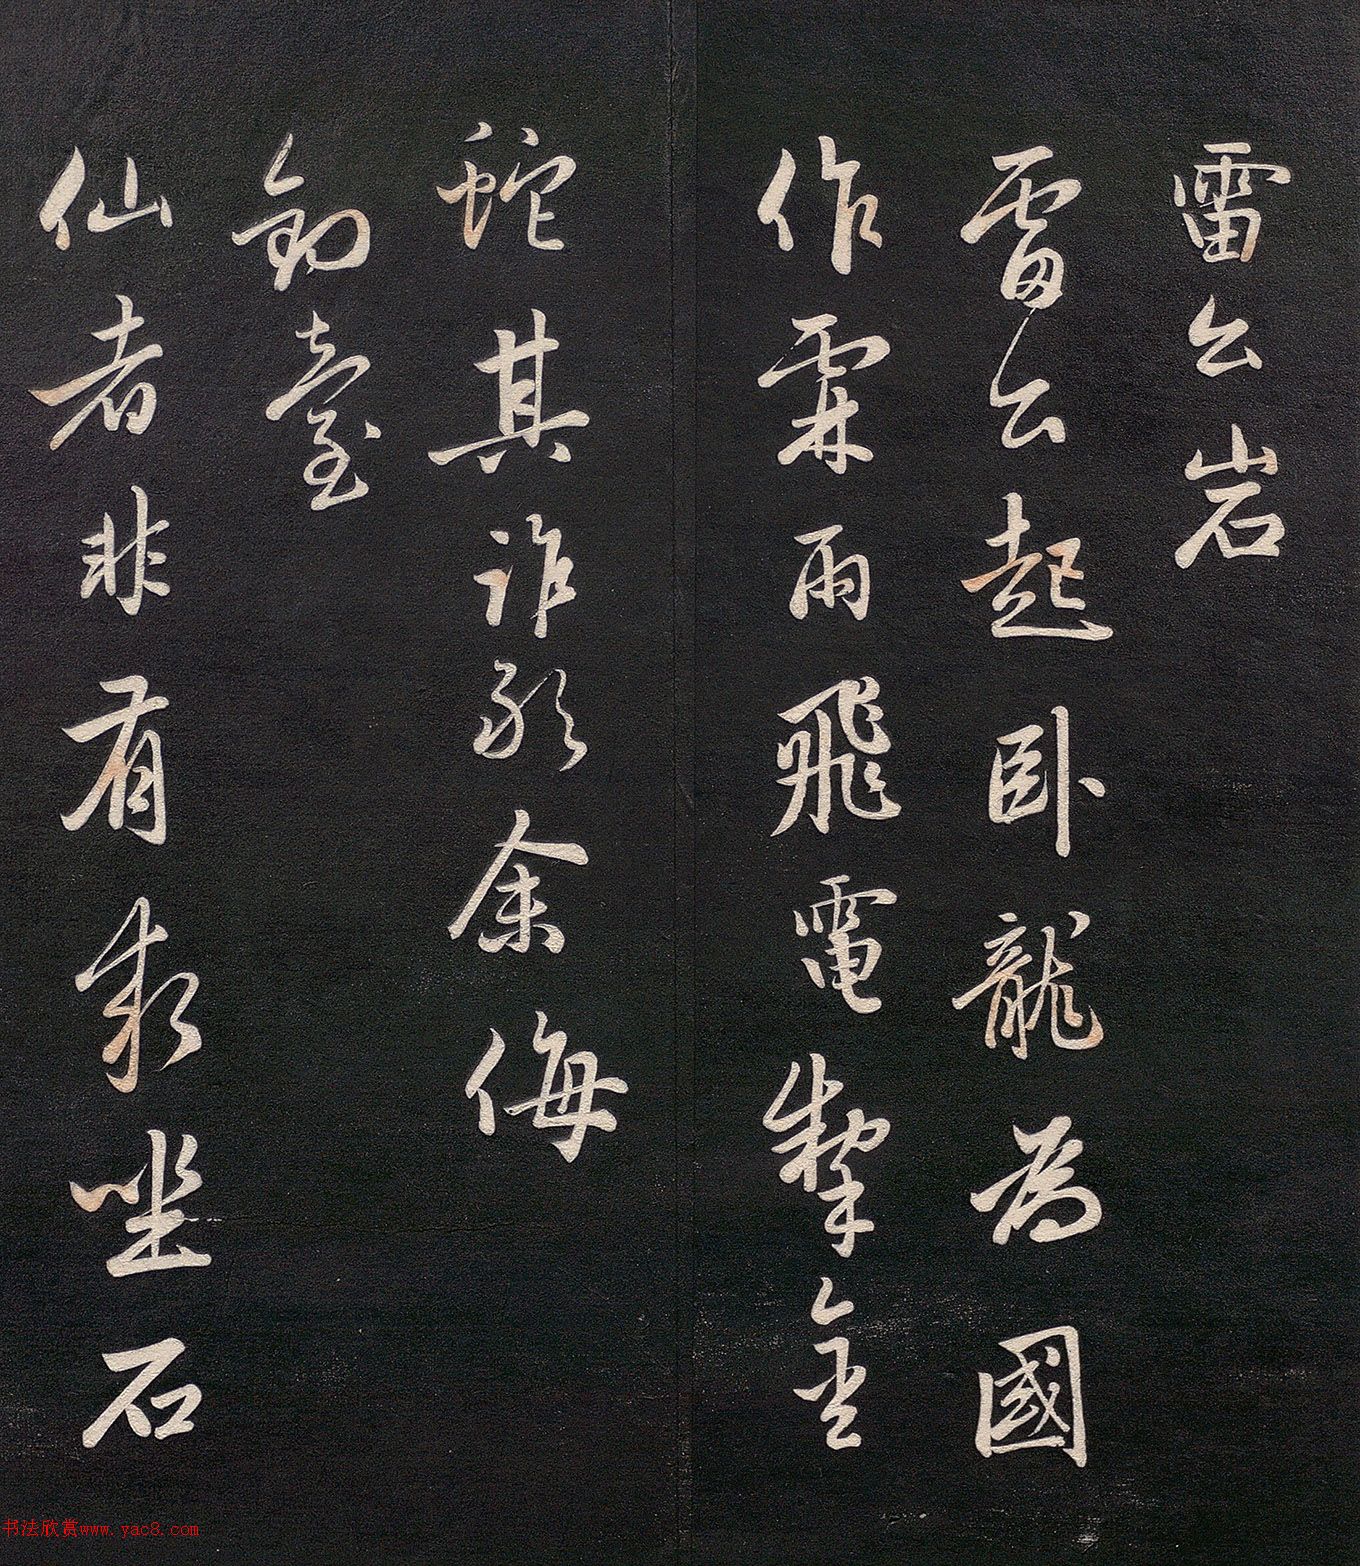 雷公岩
雷公起卧龍為國
作霖雨飛電掣金
蛇其誰敢余侮
釣臺
仙者非有求坐石
书法欣赏www.yac8.com